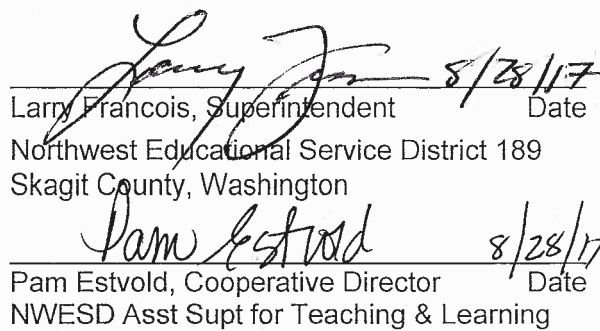 Larry Fran 8/28/17
Larry Francois, Superintendent Date
Northwest Educational Service District 189
Skagit County, Washington
Pam Estvold 8/28/17
Pam Estvold, Cooperative Director Date
NWESD Asst Supt for Teaching & Learning